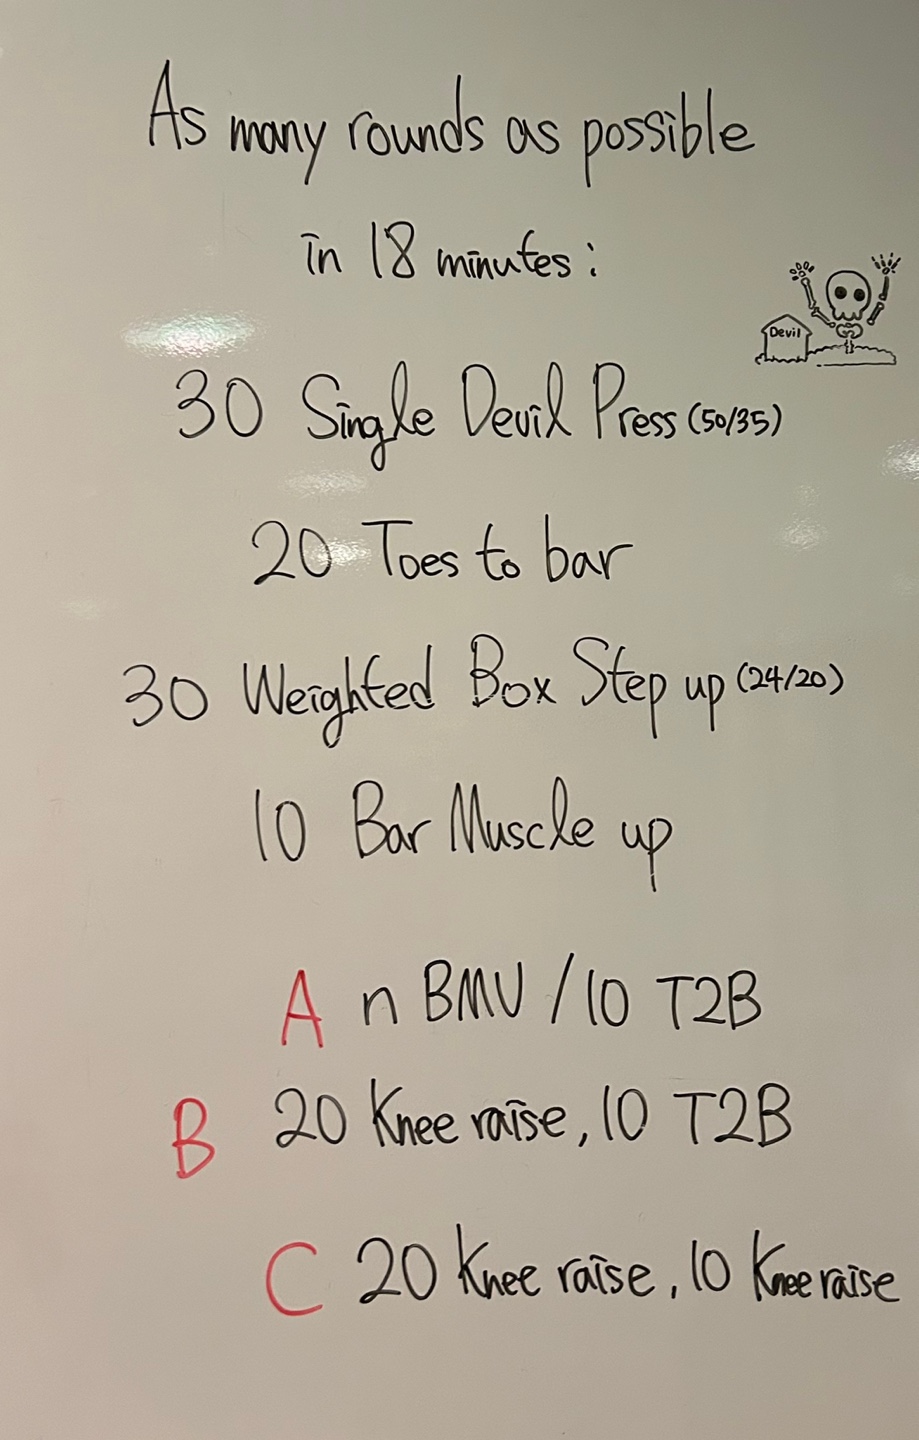 As many rounds as possible
in 18 minutes:
Devil
30 Single Devil Press (50/35)
20 Toes to bar
30 Weighted Box Step up (24/20)
10 Bar Muscle up
A n BMU / 10 T2B
B 20 Knee raise, 10 T2B
C 20 Knee raise, 10 Knee raise